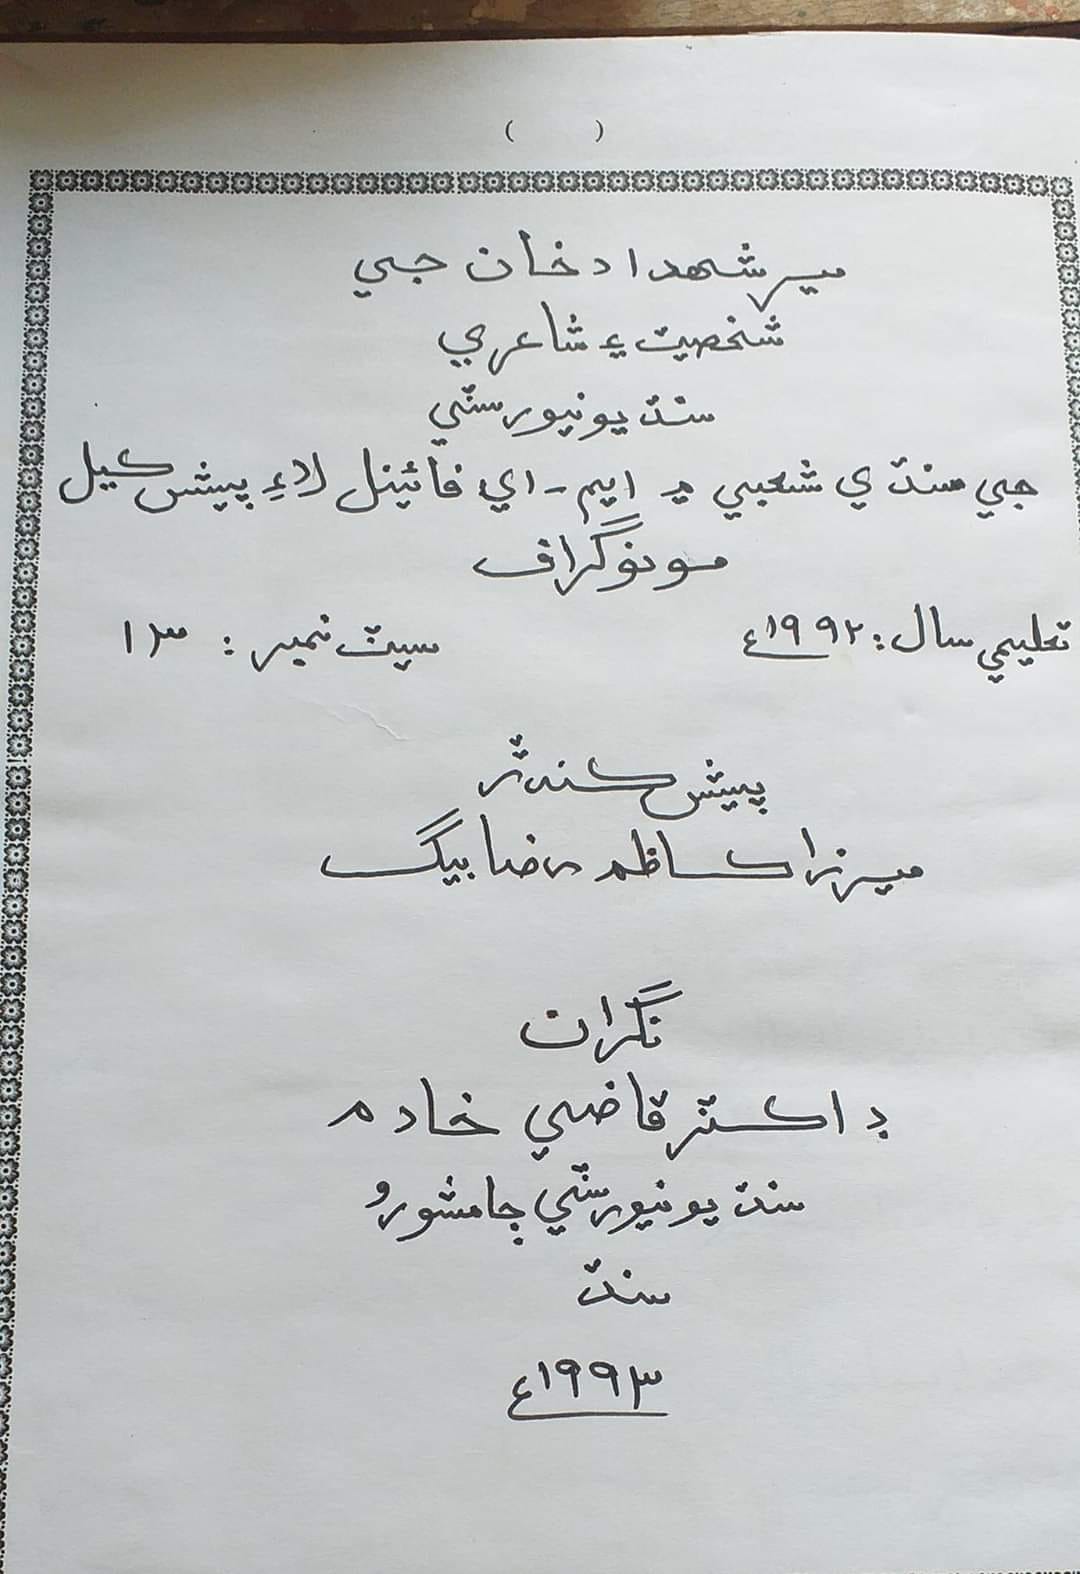 (       )
مير شهداد خان جي
شخصيت ۽ شاعري
سنڌ يونيورسٽي
جي سنڌي شعبي ۾ ايم-اي فائينل لاءِ پيش ڪيل
مونوگراف
تعليمي سال: ۱۹۹۲ع سيٽ نمبر: ۱۳
پيش ڪندڙ
ميرزا ڪاظم رضا بيگ
نگران
ڊاڪٽر قاضي خادم
سنڌ يونيورسٽي ڄامشورو
سنڌ
۱۹۹۳ع